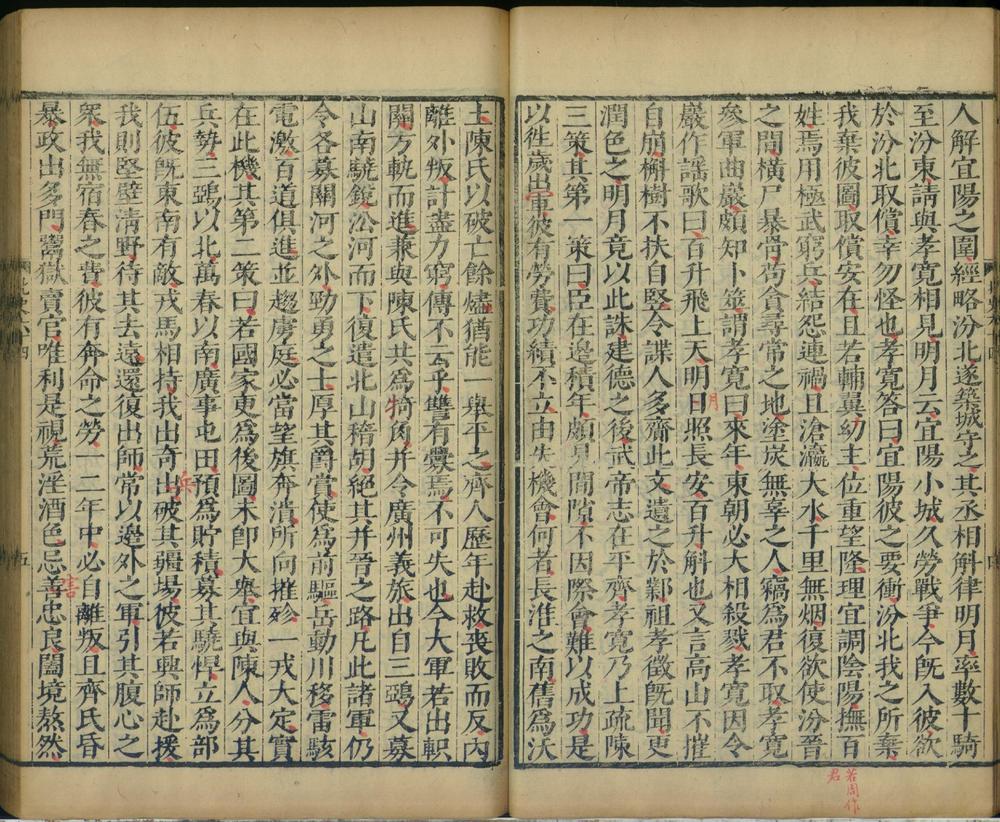 人解宜陽之圍經略汾北遂築城守之其丞相斛律明月率數十騎
至汾東請與孝寬相見明月云宜陽小城久勞戰爭今旣入彼欲
於汾北取償幸勿怪也孝寬答曰宜陽彼之要衝汾北我之所棄
我棄彼圖取償安在且若輔翼幼主位重望隆理宜調陰陽撫百
姓焉用極武窮兵結怨連禍且滄瀛大水千里無烟復欲使汾晉
之間橫尸暴骨苟貪尋常之地塗炭無辜之人竊爲君不取孝寬
參軍曲巖頗知卜筮謂孝寬曰來年東朝必大相殺戮孝寬因令
巖作謡歌曰百升飛上天明日照長安百升斛也又言高山不摧
月
自崩槲樹不扶自堅令諜人多齎此文遺之於鄴祖孝徵旣聞更
潤色之明月竟以此誅建德之後武帝志在平齊孝寬乃上疏陳
三策其第一策曰臣在邊積年頗見間隙不因際會難以成功是
以徃歲出軍彼有勞費功績不立由失機會何者長淮之南舊爲沃
若周作
君
土陳氏以破亡餘燼猶能一舉平之齊人歷年赴救喪敗而反內
離外叛計盡力窮傳不云乎讐有釁焉不可失也今大軍若出軹
關方軌而進兼與陳氏共爲犄角并令廣州義旅出自三鵶又募
山南驍銳沿河而下復遣北山稽胡絕其并晉之路凡此諸軍仍
令各募關河之外勁勇之士厚其爵賞使爲前驅岳動川移雷駭
電激百道俱進並趨虜庭必當望旗奔潰所向摧殄一戎大定實
在此機其第二策曰若國家更爲後圖未卽大舉宜與陳人分其
兵勢三鵶以北萬春以南廣事屯田預爲貯積募其驍悍立爲部
兵
伍彼旣東南有敵戎馬相持我出奇出破其疆場彼若興師赴援
我則堅壁清野待其去遠還復出師常以邊外之軍引其腹心之
衆我無宿舂之費彼有奔命之勞一二年中必自離叛且齊氏昏
暴政出多門鬻獄賣官唯利是視荒淫酒色忌善忠良闔境熬然
害